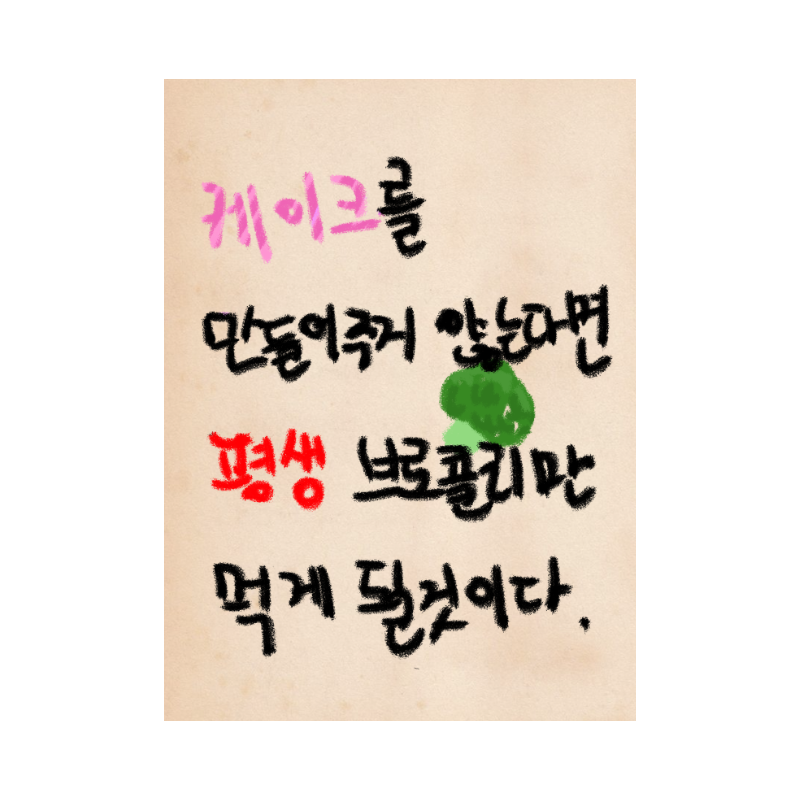 케이크를
만들어주지 않는다면
평생 브로콜리만
먹게 될것이다.